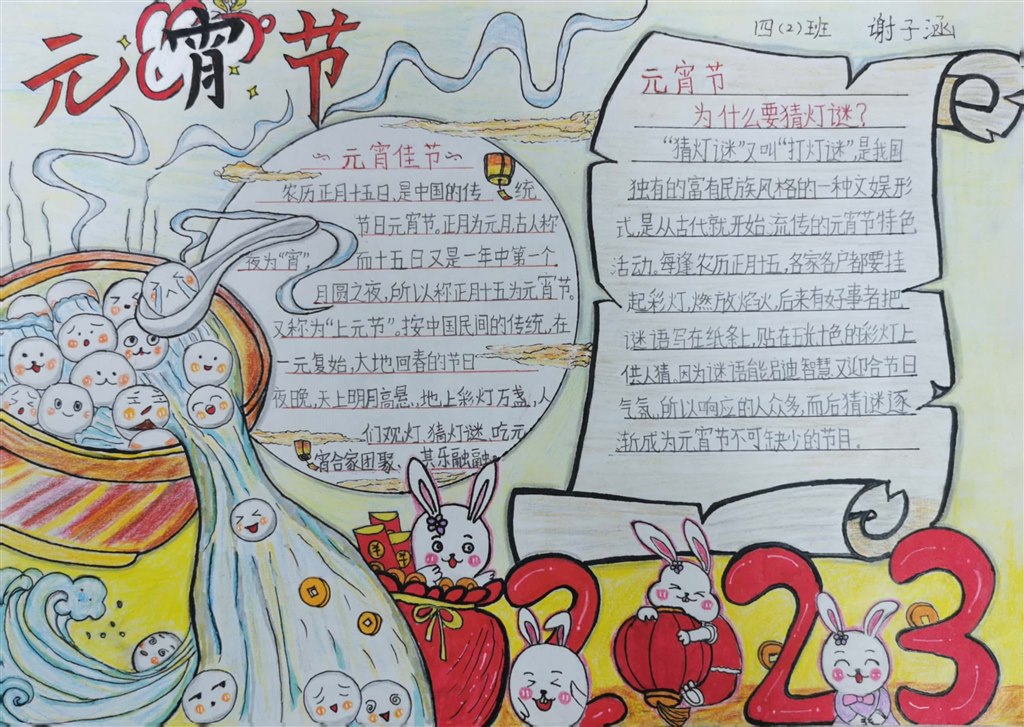 元宵节
四(2)班 谢子涵
元宵佳节
农历正月十五日,是中国的传统
节日元宵节。正月为元月,古人称
夜为“宵”, 而十五日又是一年中第一个
月圆之夜,所以称正月十五为元宵节。
又称为“上元节”。按中国民间的传统,在
一元复始,大地回春的节日
夜晚,天上明月高悬、地上彩灯万盏,人
们观灯、猜灯谜、吃元
宵合家团聚、其乐融融。
元宵节
为什么要猜灯谜?
“猜灯谜”又叫“打灯谜”,是我国
独有的富有民族风格的一种文娱形
式,是从古代就开始流传的元宵节特色
活动。每逢农历正月十五,各家各户都要挂
起彩灯,燃放焰火,后来有好事者把
谜语写在纸条上,贴在五光十色的彩灯上
供人猜。因为谜语能启迪智慧又迎合节日
气氛,所以响应的人众多,而后猜谜逐
渐成为元宵节不可缺少的节目。
2023